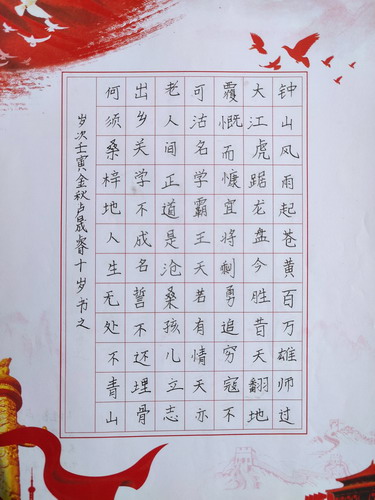 钟山风雨起苍黄百万雄师过
大江虎踞龙盘今胜昔天翻地
覆慨而慷宜将剩勇追穷寇不
可沽名学霸王天若有情天亦
老人间正道是沧桑孩儿立志
出乡关学不成名誓不还埋骨
何须桑梓地人生无处不青山
岁次壬寅金秋卢晟睿十岁书之